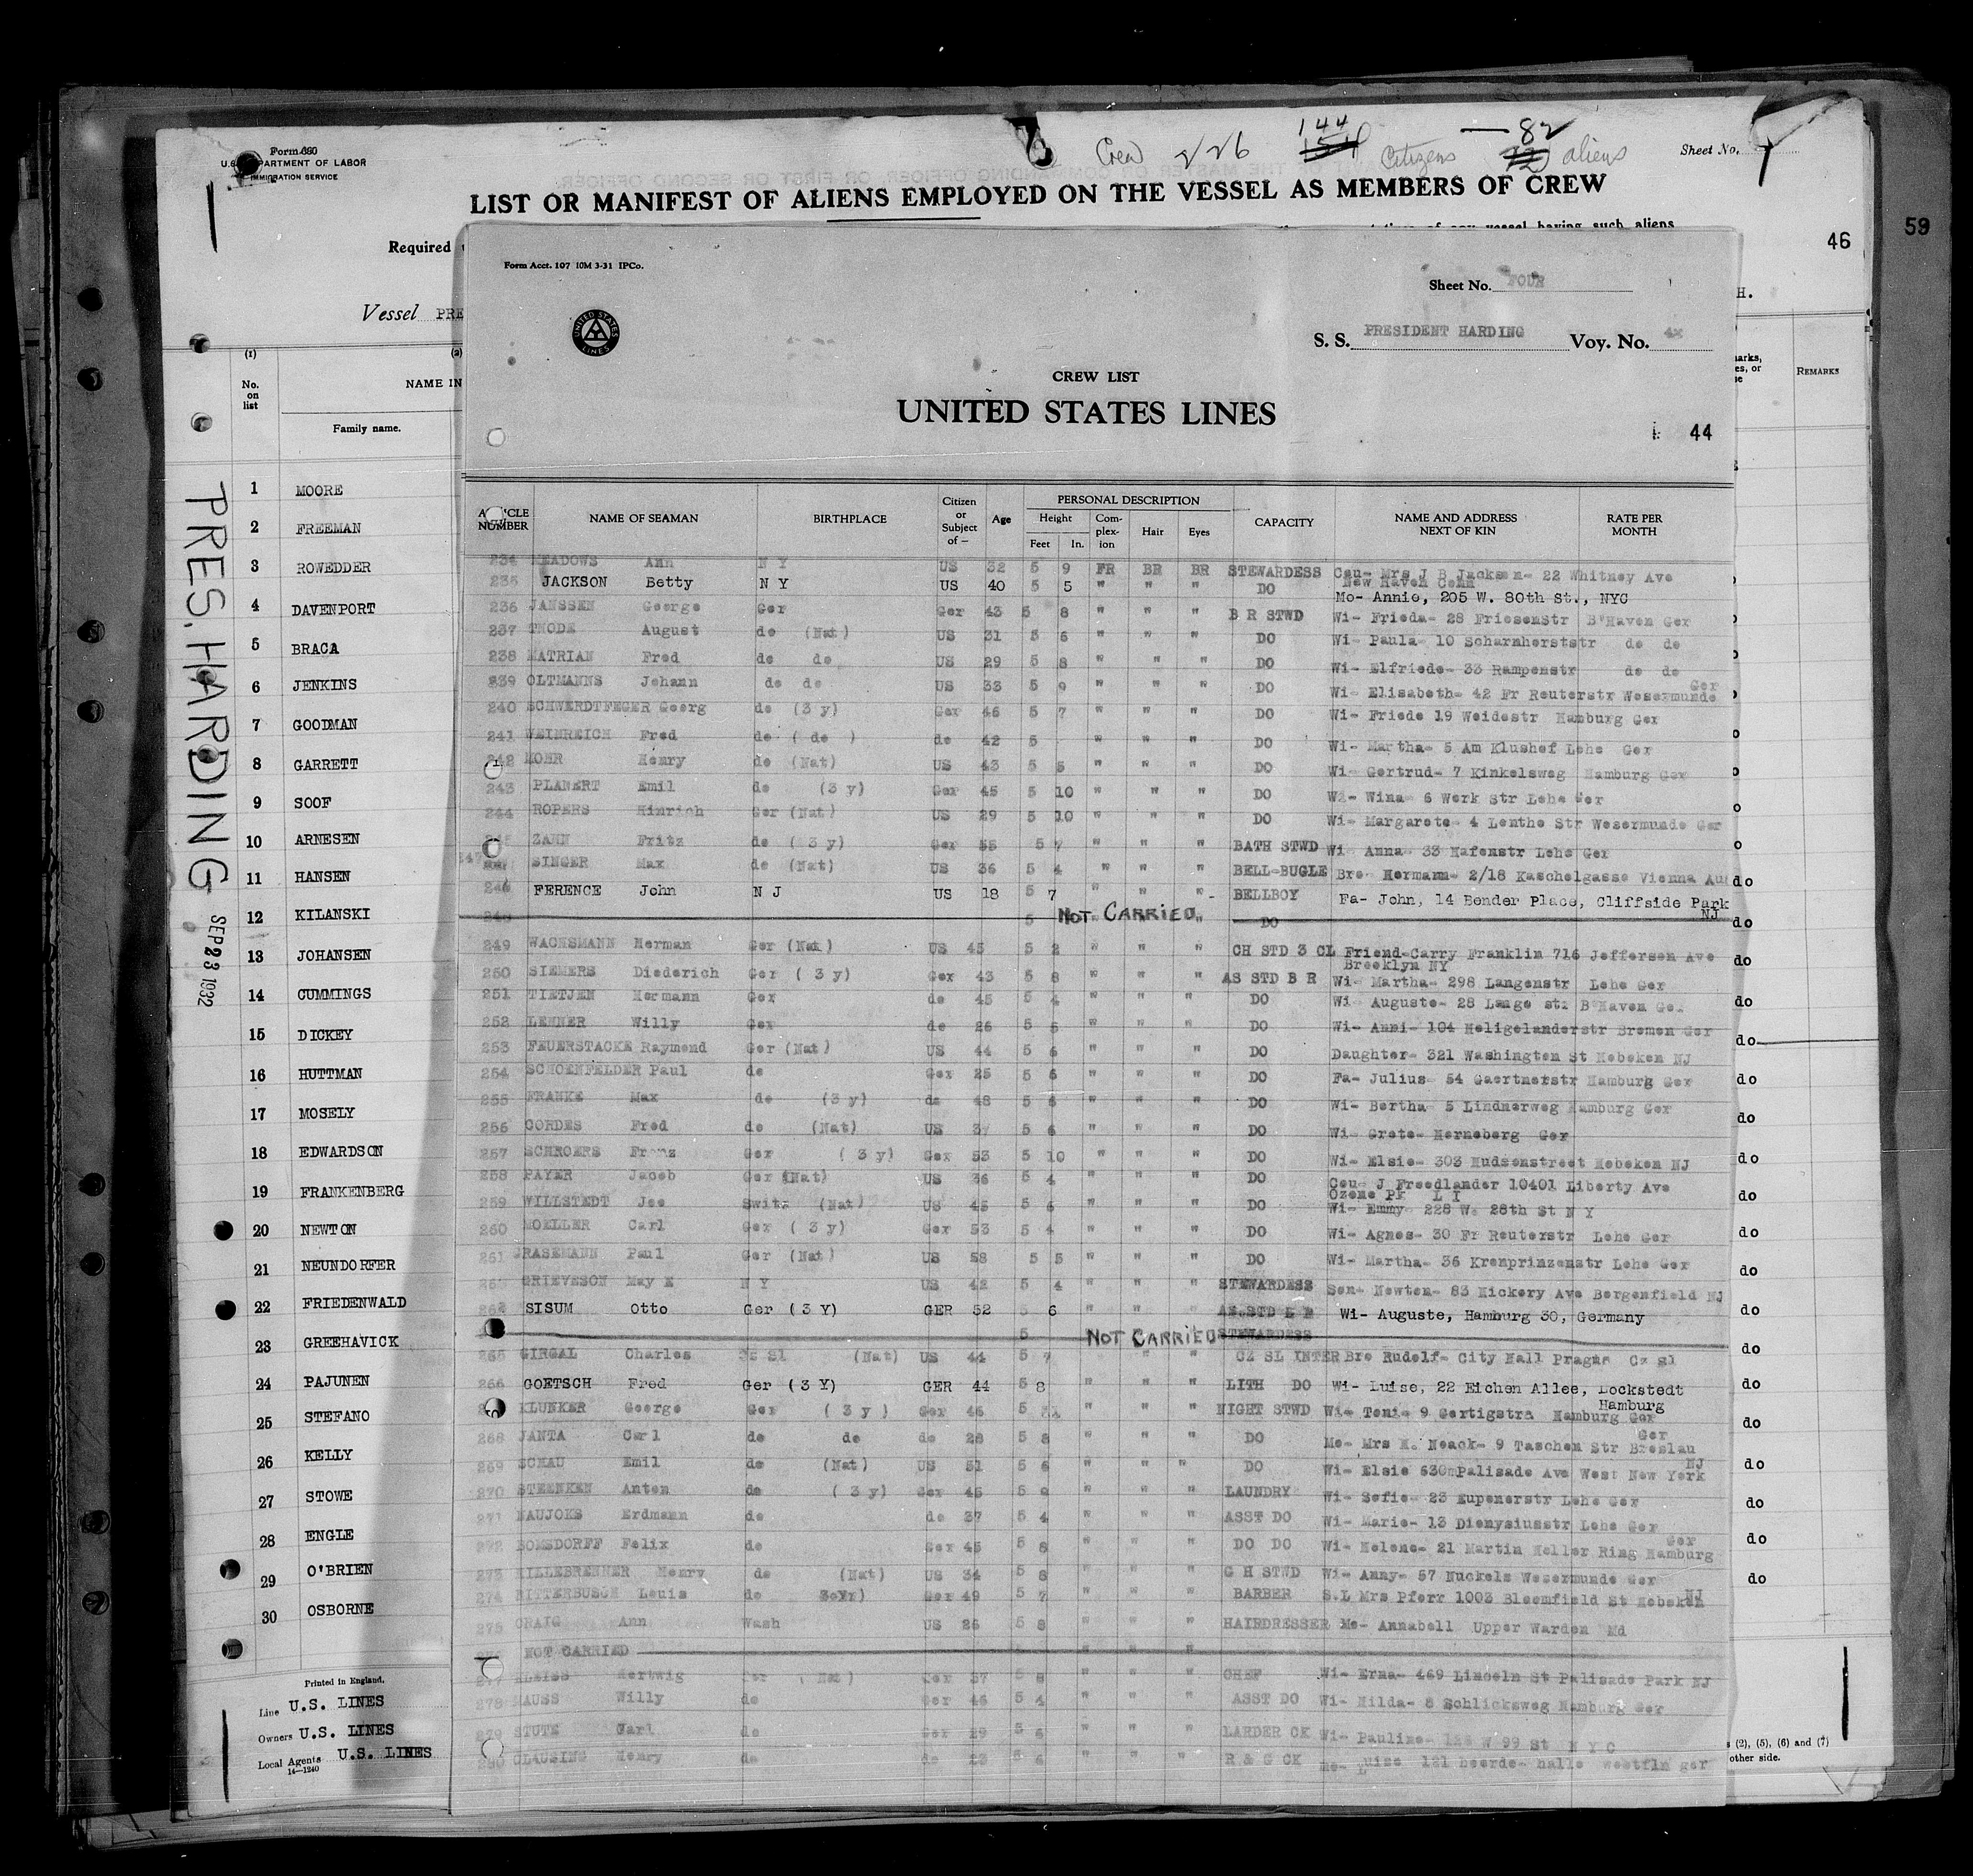 Form 680
U.S. DEPARTMENT OF LABOR
IMMIGRATION SERVICE
Crew 226 144 154 Citizens — 82 72 aliens
Sheet No.
LIST OR MANIFEST OF ALIENS EMPLOYED ON THE VESSEL AS MEMBERS OF CREW
Required
of any vessel having such aliens
46
59
H.
Vessel PRE
(1) (2)
No. on list
NAME IN
Family name.
REMARKS
PRES. HARDING
SEP 23 1932
1 MOORE
2 FREEMAN
3 ROWEDDER
4 DAVENPORT
5 BRACA
6 JENKINS
7 GOODMAN
8 GARRETT
9 SOOF
10 ARNESEN
11 HANSEN do
12 KILANSKI do
13 JOHANSEN do
14 CUMMINGS do
15 DICKEY do
16 HUTTMAN do
17 MOSELY do
18 EDWARDSON do
19 FRANKENBERG do
20 NEWTON do
21 NEUNDORFER do
22 FRIEDENWALD do
23 GREEHAVICK do
24 PAJUNEN do
25 STEFANO do
26 KELLY do
27 STOWE do
28 ENGLE do
29 O'BRIEN do
30 OSBORNE
Printed in England.
Line U.S. LINES
Owners U.S. LINES
Local Agents U.S. LINES
14—1240
(2), (5), (6) and (7)
other side.
Form Acct. 107 10M 3-31 IPCo.
Sheet No. FOUR
UNITED STATES LINES
S. S. PRESIDENT HARDING Voy. No. 4x
CREW LIST
UNITED STATES LINES
44
ARTICLE NUMBER NAME OF SEAMAN BIRTHPLACE Citizen or Subject of — Age PERSONAL DESCRIPTION CAPACITY NAME AND ADDRESS NEXT OF KIN RATE PER MONTH
Height Complexion Hair Eyes
Feet In.
234 MEADOWS Ann N Y US 32 5 9 FR BR BR STEWARDESS Cou- Mrs J B Jackson- 22 Whitney Ave
New Haven Conn
235 JACKSON Betty N Y US 40 5 5 " " " DO Mo- Annie, 205 W. 80th St., NYC
236 JANSSEN George Ger Ger 43 5 8 " " " B R STWD Wi- Frieda- 28 Friesenstr B'Haven Ger
237 THODE August do (Nat) US 31 5 6 " " " DO Wi- Paula- 10 Scharnherststr do do
238 MATRIAN Fred do do US 29 5 8 " " " DO Wi- Elfriede- 33 Rampenstr do do
239 OLTMANNS Johann do do US 33 5 9 " " " DO Wi- Elisabeth- 42 Fr Reuterstr Wesermunde Ger
240 SCHWERDTFEGER Georg do (3 y) Ger 46 5 7 " " " DO Wi- Friede 19 Weidestr Hamburg Ger
241 WEINREICH Fred do ( do ) do 42 5 " " " DO Wi- Martha- 5 Am Klushof Lehe Ger
242 MOHR Henry do (Nat) US 43 5 5 " " " DO Wi- Gertrud- 7 Kinkelsweg Hamburg Ger
243 PLANERT Emil do (3 y) Ger 45 5 10 " " " DO Wi- Wina- 6 Werk Str Lehe Ger
244 ROPERS Hinrich Ger (Nat) US 29 5 10 " " " DO Wi- Margarete- 4 Lenthe Str Wesermunde Ger
245 ZAHN Fritz do ( 3 y) Ger 55 5 7 " " " BATH STWD Wi Anna- 33 Hafenstr Lehe Ger
247 SINGER Max do (Nat) US 36 5 4 " " " BELL-BUGLE Bro- Hermann- 2/18 Kaschelgasse Vienna Aus
246 FERENCE John N J US 18 5 7 " " " BELLBOY Fa- John, 14 Bender Place, Cliffside Park NJ
248 5 NOT CARRIED " DO
249 WACHSMANN Herman Ger (Nat) US 45 5 2 " " " CH STD 3 CL Friend-Carry Franklin 716 Jefferson Ave
Brooklyn NY
250 SIEMERS Diederich Ger ( 3 y) Ger 43 5 8 " " " AS STD B R Wi- Martha- 298 Langenstr Lehe Ger
251 TIETJEN Hermann Ger do 45 5 4 " " " DO Wi Auguste- 28 Lange str B'Haven Ger
252 LEHNER Willy Ger do 26 5 5 " " " DO Wi- Anni- 104 Heligelanderstr Bremen Ger
253 FEUERSTACKE Raymond Ger (Nat) US 44 5 6 " " " DO Daughter- 321 Washington St Hoboken NJ
254 SCHOENFELDER Paul do Ger 25 5 6 " " " DO Fa- Julius- 54 Gaertnerstr Hamburg Ger
255 FRANKE Max do (3 y) do 48 5 6 " " " DO Wi- Bertha- 5 Lindnerweg Hamburg Ger
256 CORDES Fred do (Nat) US 37 5 6 " " " DO Wi- Grete- Herneberg Ger
257 SCHROERS Franz Ger ( 3 y) Ger 53 5 10 " " " DO Wi- Elsie- 303 Hudsonstreet Hoboken NJ
258 PAYER Jacob Ger (Nat) US 36 5 4 " " " DO Cou- J Freedlander 10401 Liberty Ave
Ozone Pk L I
259 WILLSTEDT Joe Switz (Nat) US 45 5 6 " " " DO Wi- Emmy- 228 W. 28th St N Y
260 MOELLER Carl Ger ( 3 y) Ger 53 5 4 " " " DO Wi- Agnes- 30 Fr Reuterstr Lehe Ger
261 GRASEMANN Paul Ger (Nat) US 58 5 5 " " " DO Wi- Martha- 36 Kronprinzenstr Lehe Ger
262 GRIEVESON May E N Y US 42 5 4 " " " STEWARDESS Son- Newton- 83 Hickory Ave Bergenfield NJ
263 SISUM Otto Ger ( 3 Y) GER 52 5 6 " " " AS STD B R Wi- Auguste, Hamburg 30, Germany
5 NOT CARRIED STEWARDESS
265 GIRGAL Charles Cz Sl (Nat) US 44 5 7 " " CZ SL INTER Bro Rudolf- City Hall Prague Cz Sl
266 GOETSCH Fred Ger ( 3 Y) GER 44 5 8 " " " LITH DO Wi- Luise, 22 Eichen Allee, Lockstedt
Hamburg
KLUNKER George Ger ( 3 y ) Ger 46 5 11 " " " NIGHT STWD Wi- Toni- 9 Gertigstra Hamburg Ger
268 JANTA Carl do do do 28 5 8 " " " DO Mo- Mrs H. Noack- 9 Taschen Str Breslau Ger
269 SCHAU Emil do (Nat) US 51 5 6 " " " DO Wi- Elsie 630 Palisade Ave West New York NJ
270 STEENKEN Anton do ( 3 y) Ger 45 5 9 " " " LAUNDRY Wi- Sofie- 23 Eupenerstr Lehe Ger
271 NAUJOKS Erdmann do do 37 5 4 " " " ASST DO Wi- Marie- 13 Dionysiusstr Lehe Ger
272 BOMSDORFF Felix do Ger 45 5 8 " " DO DO Wi- Helene- 21 Martin Heller Ring Hamburg Ger
273 HILLEBRENNER Henry do (Nat) US 34 5 8 " " " G H STWD Wi- Anny- 57 Nuckels Wesermunde Ger
274 RITTERBUSCH Louis do Ger 49 5 7 " " " BARBER S.L Mrs Pforr 1003 Bloomfield St Hoboken NJ
275 CRAIG Ann Wash US 26 5 8 " " " HAIRDRESSER Mo- Annabell Upper Warden Md
NOT CARRIED " " "
277 Hertwig Ger Nat) Ger 37 5 8 " " " CHEF Wi- Erna- 469 Lincoln St Palisade Park NJ
278 MAUSS Willy do Ger 46 5 4 " " " ASST DO Wi- Hilda- 8 Schlicksweg Hamburg Ger
279 STUTE Carl do Ger 29 5 6 " " " LARDER CK Wi- Pauline- W 99 St N Y C
280 CLAUSING Henry do do 23 5 6 " " " R & G CK Mo- Luise 121 heerde- halle westfln ger